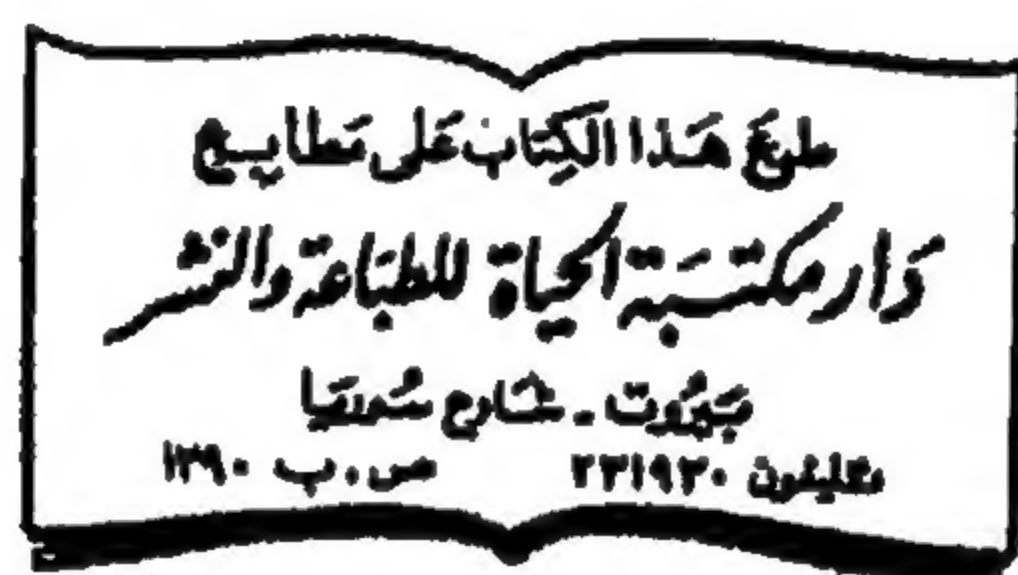 طبعَ هَذا الكِتَاب عَلى مَطابِع
دَار مكتَبَة الحَياة للطبَاعة والنشر
بَيرُوت - شارع سُوريَا
تليفون ٢٣١٩٣٠ ص.ب ١٣٩٠